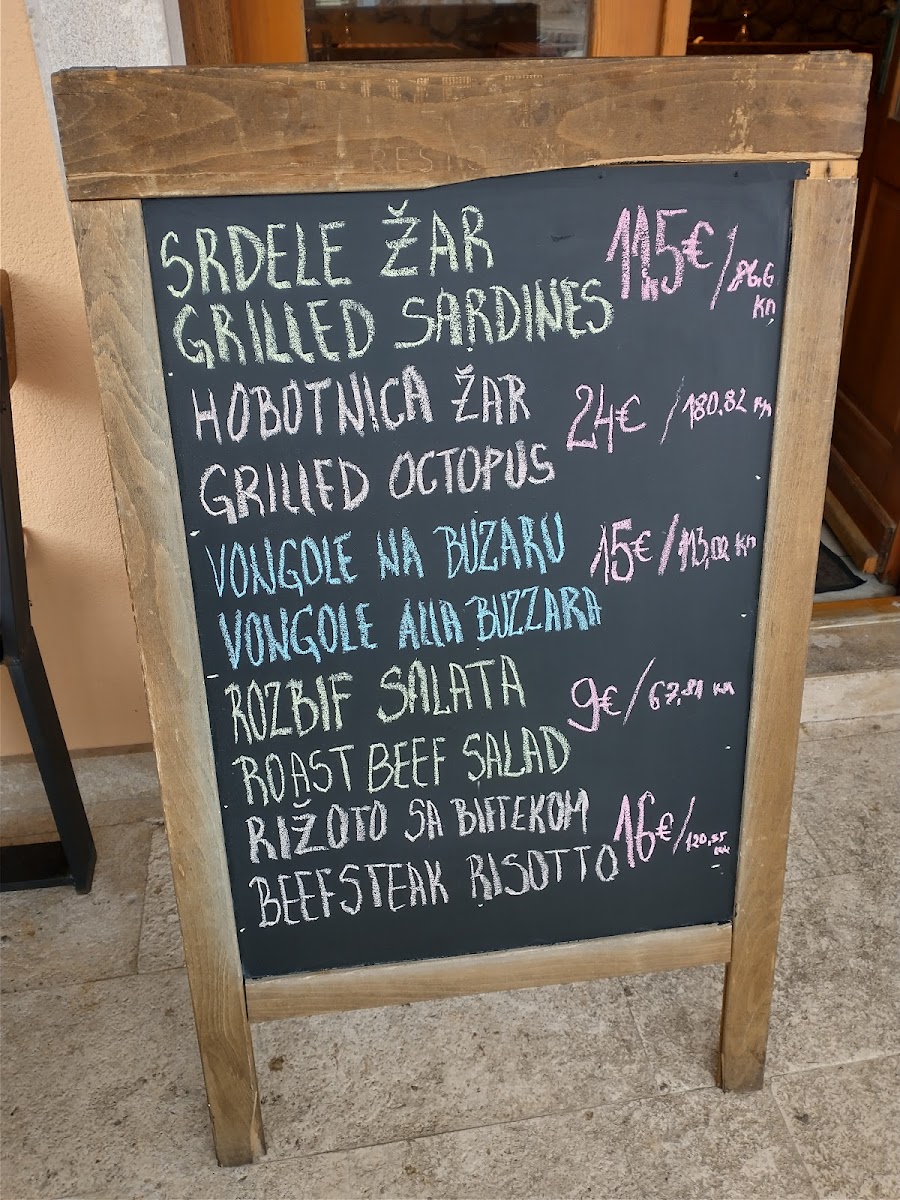 SRDELE ŽAR 11,5€/86,6 kn
GRILLED SARDINES
HOBOTNICA ŽAR 24€/180,82 kn
GRILLED OCTOPUS
VONGOLE NA BUZARU 15€/113,02 kn
VONGOLE ALLA BUZZARA
ROZBIF SALATA 9€/67,81 kn
ROAST BEEF SALAD
RIŽOTO SA BIFTEKOM 16€/120,55 kn
BEEFSTEAK RISOTTO